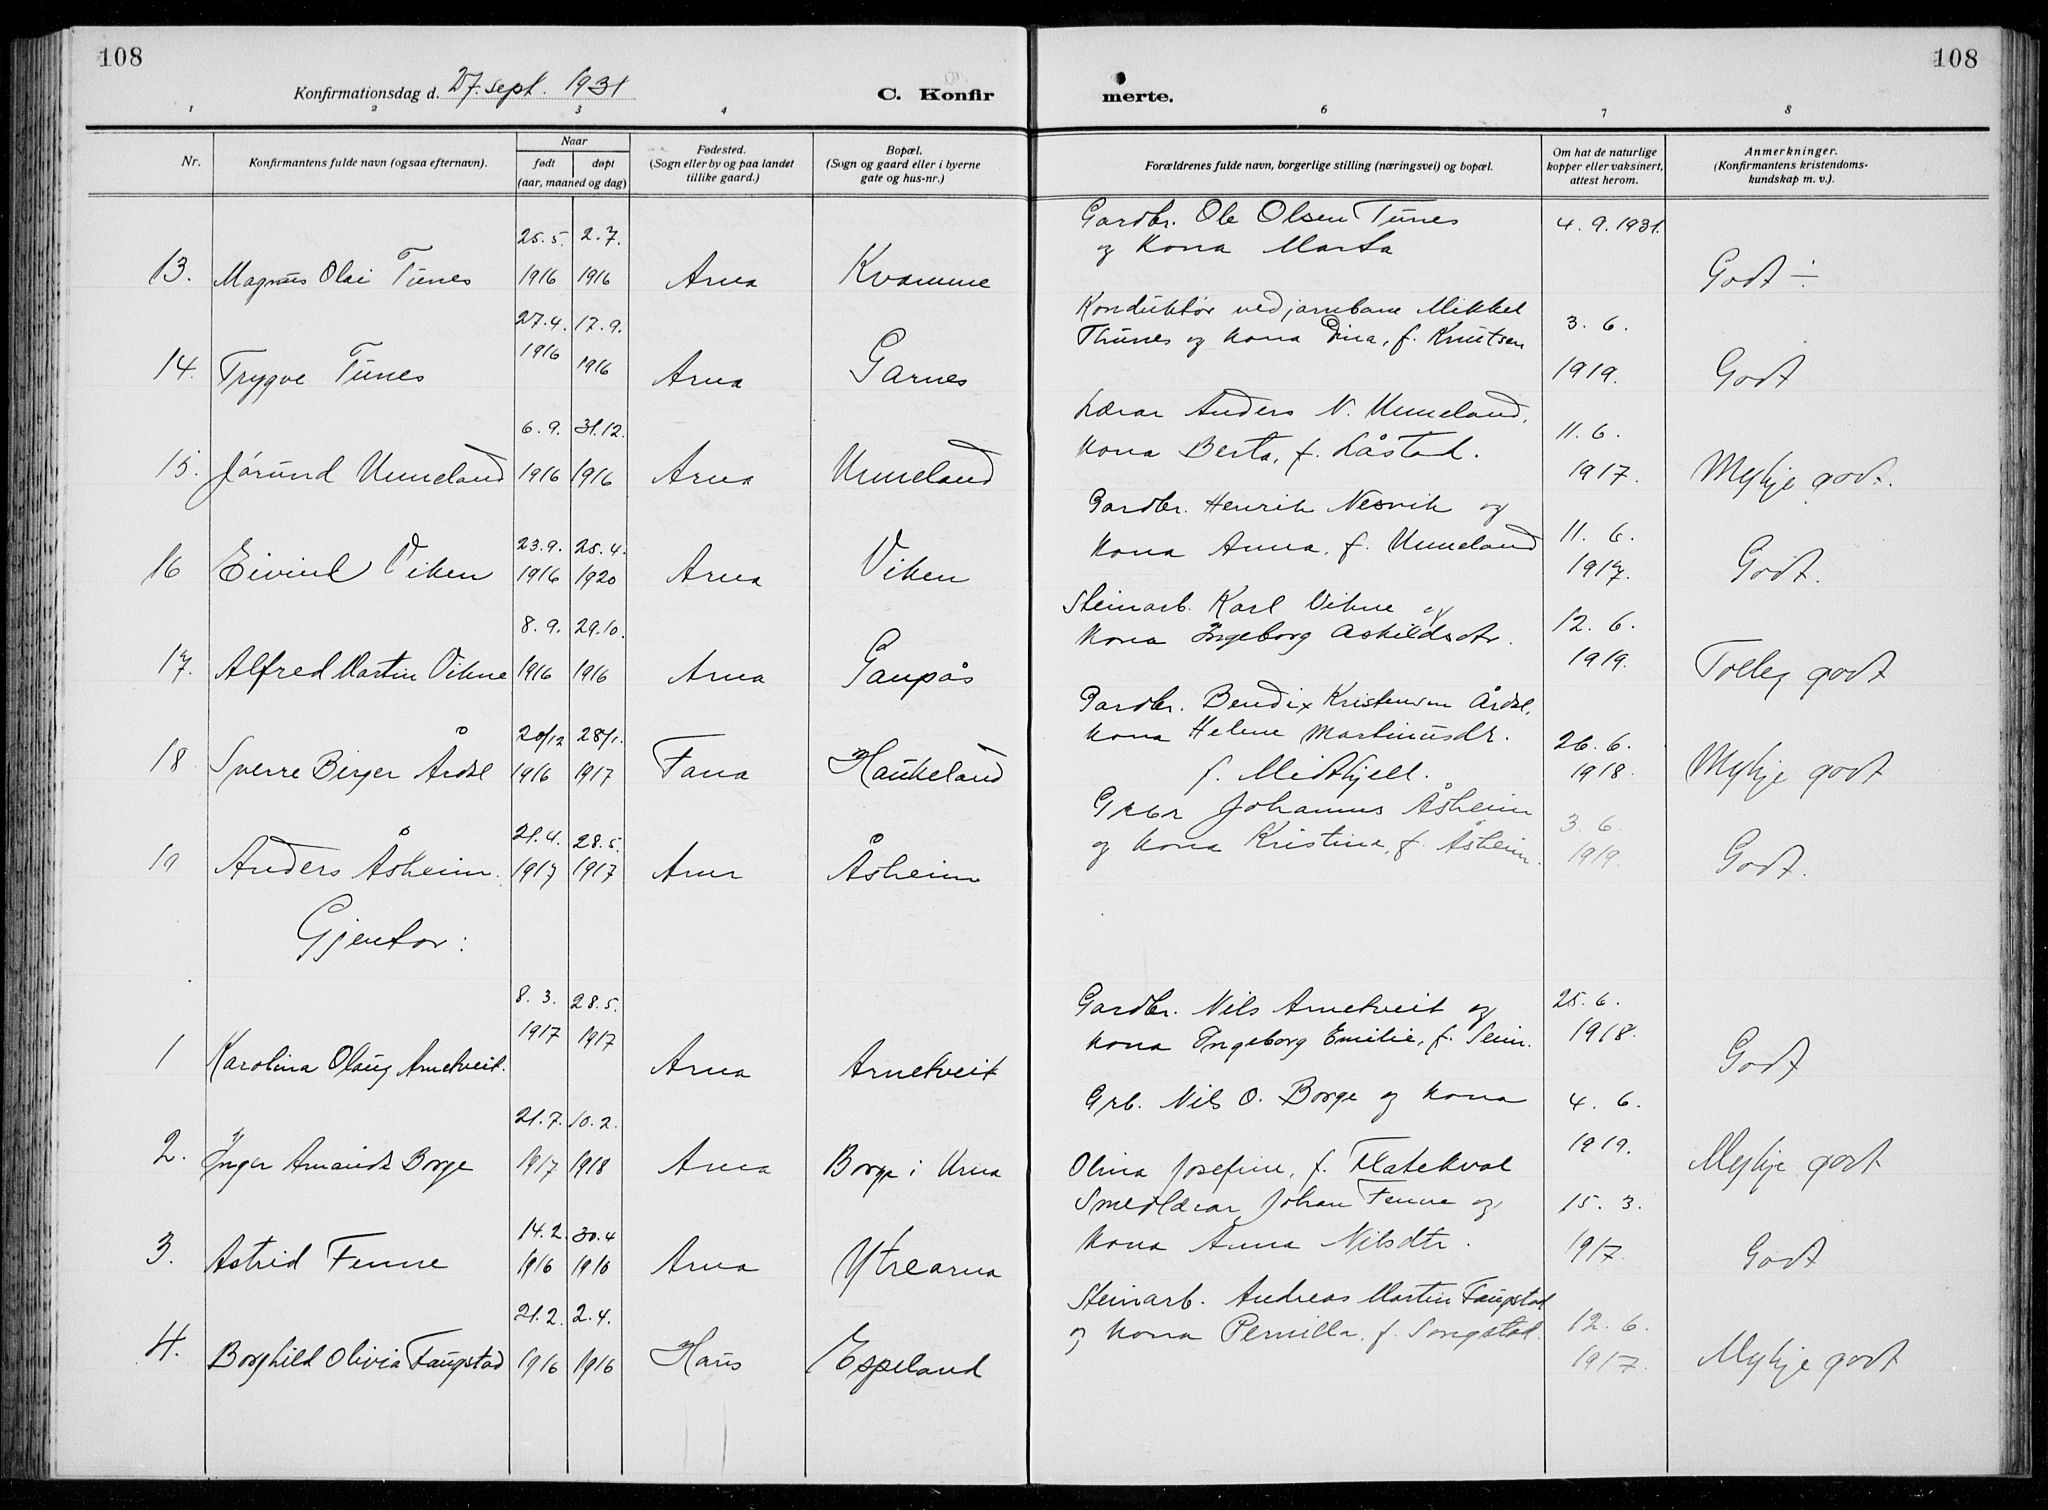 108
108
Konfirmationsdag d. 27. sept. 1931
C. Konfirmerte.
1 2 3 4 6 7 8
Nr.
Konfirmantens fulde navn (ogsaa efternavn).
Naar
født
døpt
(aar, maaned og dag)
Fødested.
(Sogn eller by og paa landet
tillike gaard.)
Bopæl.
(Sogn og gaard eller i byerne
gate og hus-nr.)
Forældrenes fulde navn, borgerlige stilling (næringsvei) og bopæl.
Om hat de naturlige
kopper eller vaksinert,
attest herom.
Anmerkninger.
(Konfirmantens kristendoms-
kundskap m. v.).
13. Magnus Olai Tunes 25.5. 1916 2.7. 1916 Arna Kvamme
Gardbr. Ole Olsen Tunes
og kona Marta
4. 9. 1931. Godt ÷
14. Trygve Tunes 27.4. 1916 17.9. 1916 Arna Garnes
Konduktør ved jarnbane Mikkel
Thunes og kona Dina, f. Knutsen
3. 6. 1919. Godt
15. Jørund Unneland 6.9. 1916 31.12. 1916 Arna Unneland
Lærar Anders N. Unneland,
kona Berta, f. Låstad.
11. 6. 1917. Mykje godt.
16 Eivind Viken 23.9. 1916 25.4. 1920 Arna Viken
Gardbr. Henrik Nesvik og
kona Anna, f. Unneland
11. 6. 1917. Godt.
17. Alfred Martin Vikne 8.9. 1916 29.10. 1916 Arna Gaupås
Steinarb. Karl Vikne og
kona Ingeborg Askildsdtr.
12. 6. 1919. Tolleg godt
18 Sverre Birger Årdal 20/12 1916 28/1. 1917 Fana Haukeland
Gardbr. Bendix Kristensen Årdal,
kona Helene Martinusdr.
f. Midtfjell.
26. 6. 1918. Mykje godt
19 Anders Åsheim. 21.4. 1917 28.5. 1917 Arna Åsheim
Johannes Åsheim
og kona Kristina, f. Åsheim.
3. 6. 1919. Godt.
Gjentor:
1 Karolina Olaug Arnetveit. 8.3. 1917 28.5. 1917 Arna Arnetveit
Gardbr. Nils Arnetveit og
kona Ingeborg Emilie, f. Seim.
25. 6. 1918. Godt
2. Inger Amanda Borge 21.7. 1917 10.2. 1918 Arna Borge i Arna
Grb. Nils O. Borge og kona
Olina Josefine, f. Flatekval
4. 6. 1919. Mykje godt
3. Astrid Fenne 14.2. 1916 30.4 1916 Arna Ytrearna
Smedlærar Johan Fenne og
kona Anna Nilsdtr.
15. 3. 1917. Godt
4. Borghild Olivia Faugstad 21.2. 1916 2.4. 1916 Haus Espeland
Steinarb. Andreas Martin Faugstad
og kona Pernilla, f. Songstad.
12. 6. 1917. Mykje godt